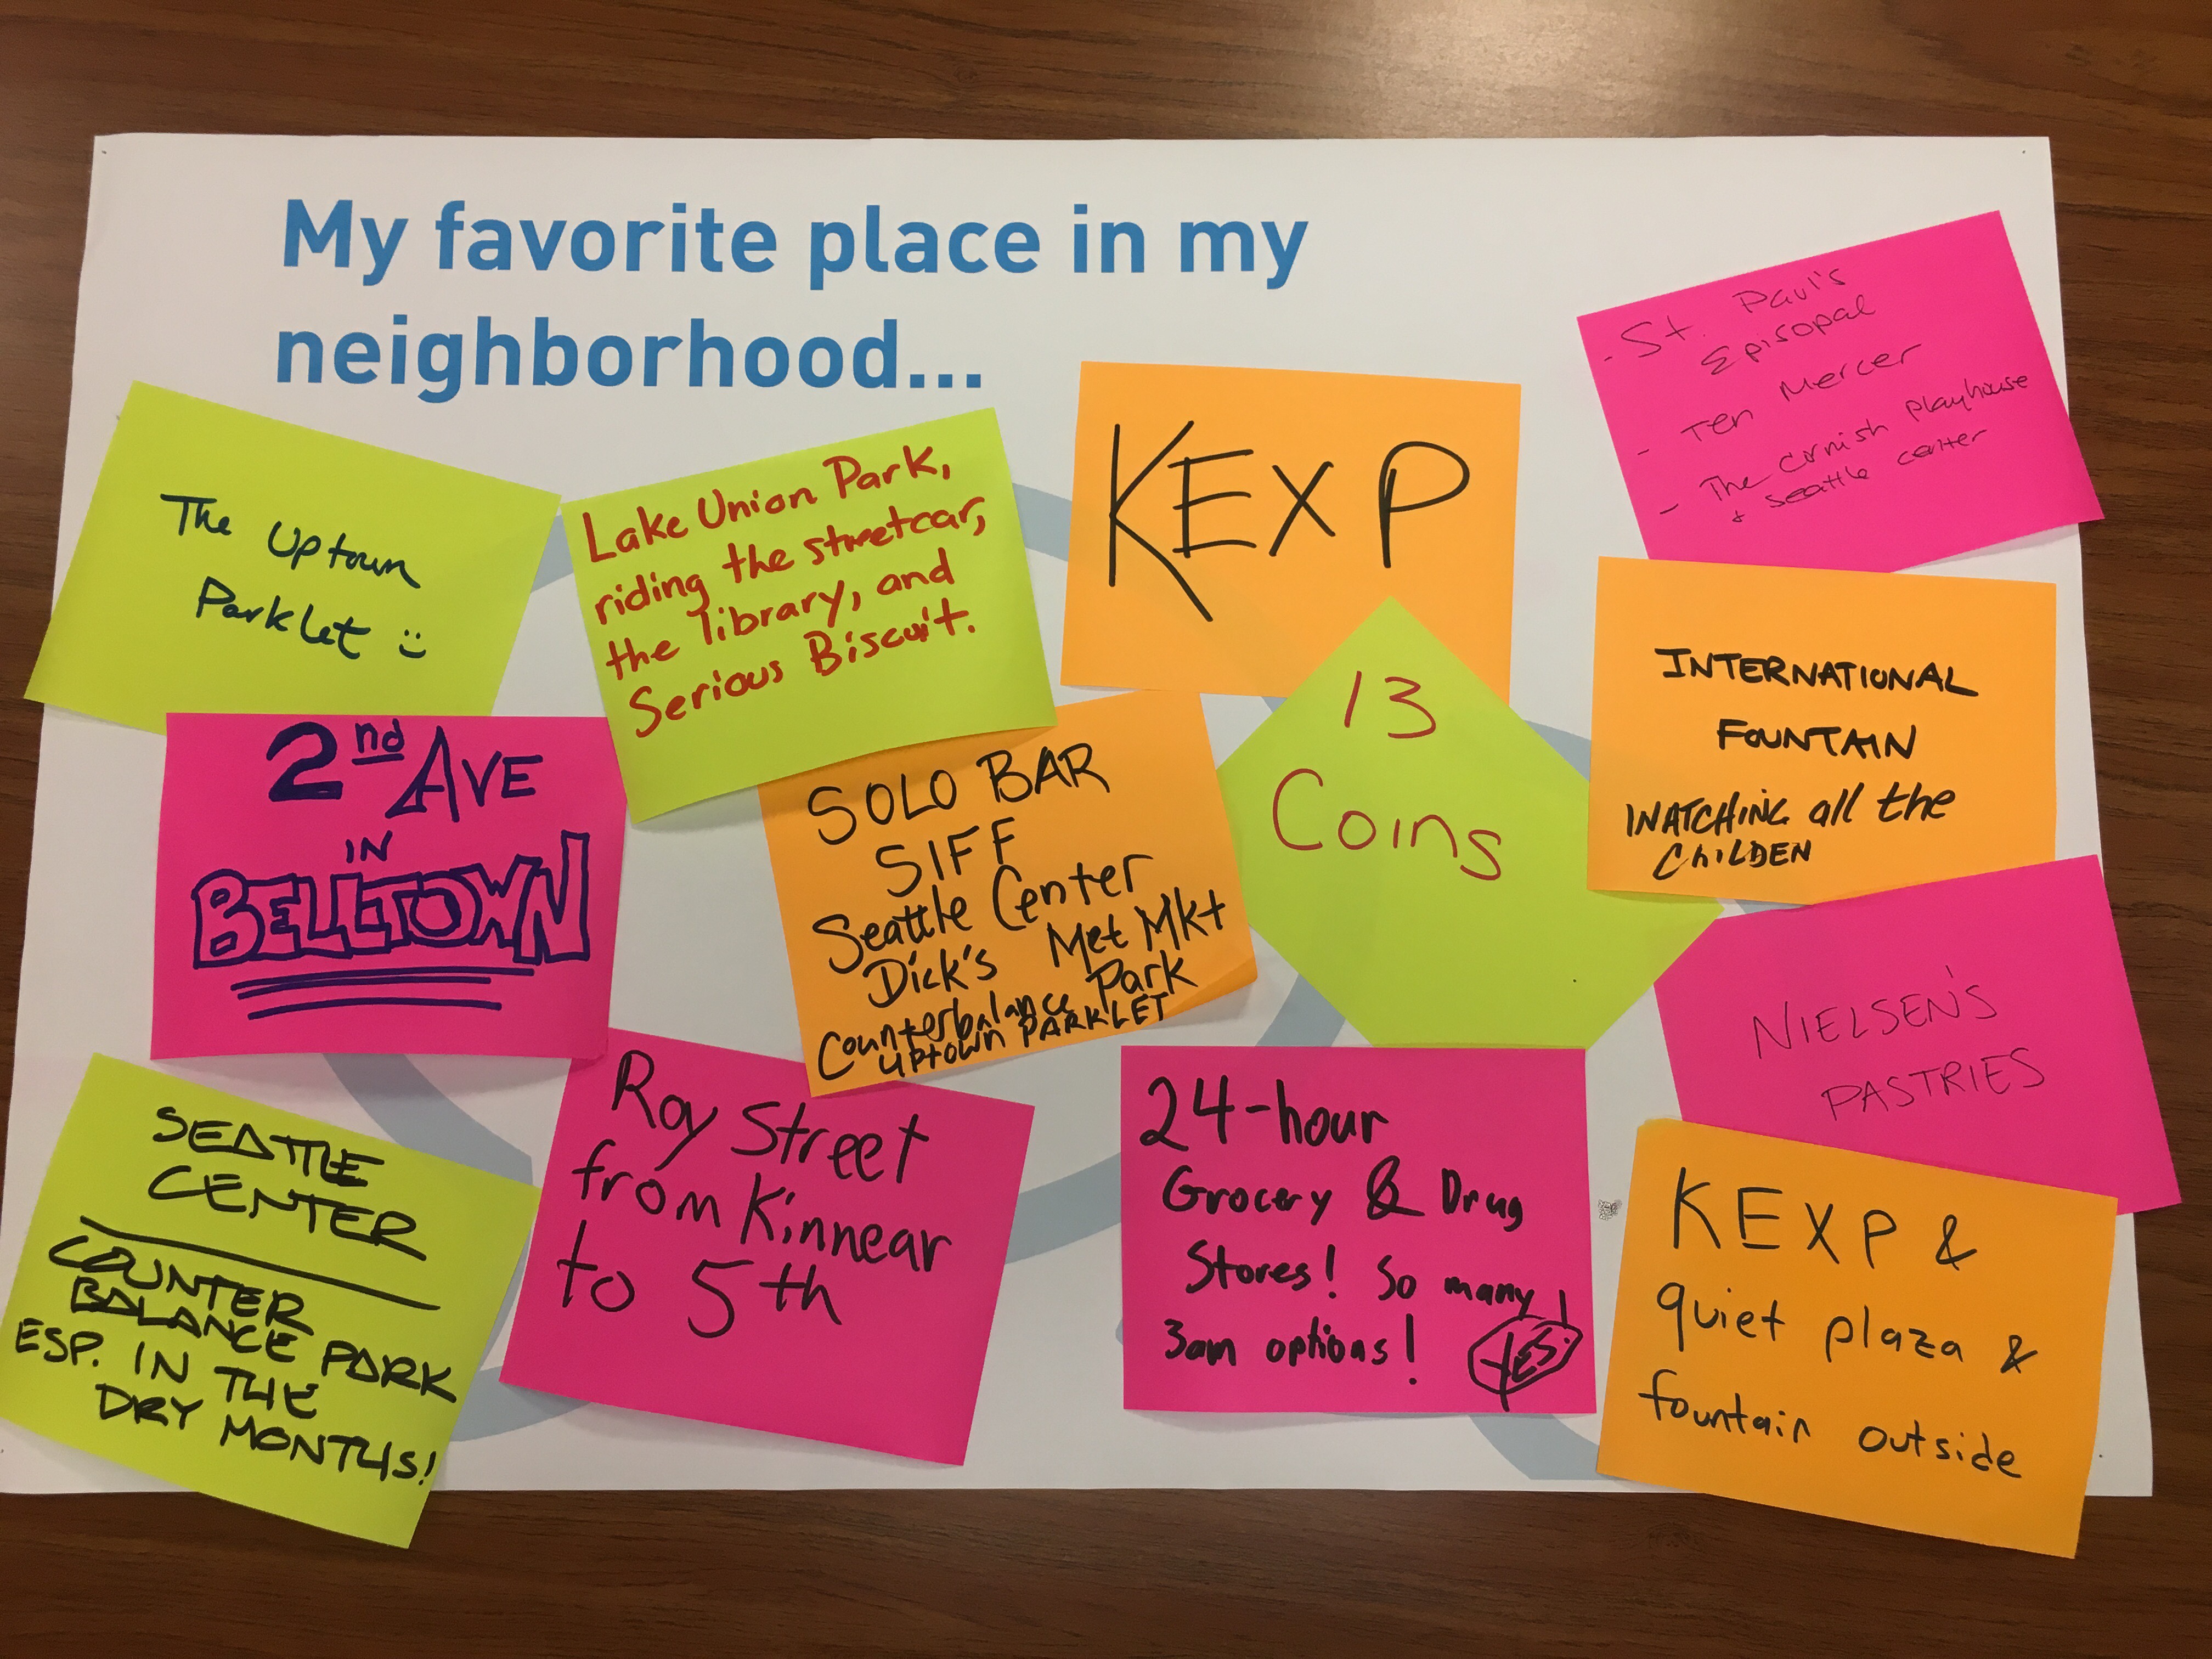 My favorite place in my
neighborhood...
- St. Paul's
Episopal
- Ten Mercer
- The Cornish playhouse
+ seattle center
The Uptown
Parklet :)
Lake Union Park,
riding the streetcar,
the library, and
Serious Biscuit.
KEXP
INTERNATIONAL
FOUNTAIN
WATCHING all the
CHILDEN
2nd AVE
IN
BELLTOWN
SOLO BAR
SIFF
Seattle Center
Dick's Met Mkt
Counterbalance Park
UPTOWN PARKLET
13
Coins
NIELSEN'S
PASTRIES
SEATTLE
CENTER
COUNTER
BALANCE PARK
ESP. IN THE
DRY MONTHS!
Roy Street
from Kinnear
to 5th
24-hour
Grocery & Drug
Stores! So many
3am options! YES!
KEXP &
quiet plaza &
fountain outside